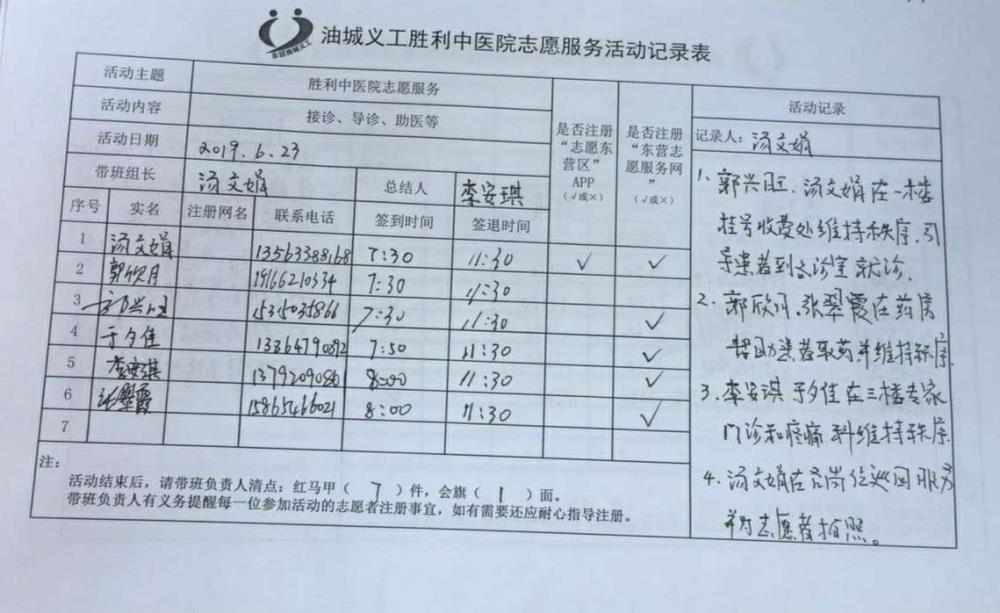 油城义工胜利中医院志愿服务活动记录表
活动主题 胜利中医院志愿服务
活动内容 接诊、导诊、助医等
活动日期 2019.6.23
带班组长 汤文娟 总结人 李安琪
是否注册“志愿东营区”APP(√或×)
是否注册“东营志愿服务网”(√或×)
序号 实名 注册网名 联系电话 签到时间 签退时间
1 汤文娟 13563388168 7:30 11:30 √ √
2 郭欣月 19166210334 7:30 11:30
3 郭兴旺 15315035866 7:30 11:30 √
4 于夕佳 13864790892 7:50 11:30 √
5 李安琪 1379209086 8:00 11:30 √
6 张翠霞 15865466021 8:00 11:30 √
7
注:
活动结束后,请带班负责人清点:红马甲(7)件,会旗(1)面。
带班负责人有义务提醒每一位参加活动的志愿者注册事宜,如有需要还应耐心指导注册。
活动记录
记录人:汤文娟
1、郭兴旺、汤文娟在一楼
挂号收费处维持秩序,引
导患者到各诊室就诊.
2、郭欣月、张翠霞在药房
帮助患者取药并维持秩序.
3、李安琪 于夕佳在三楼专家
门诊和疼痛科维持秩序
4、汤文娟在各岗位巡回服务
并为志愿者拍照。